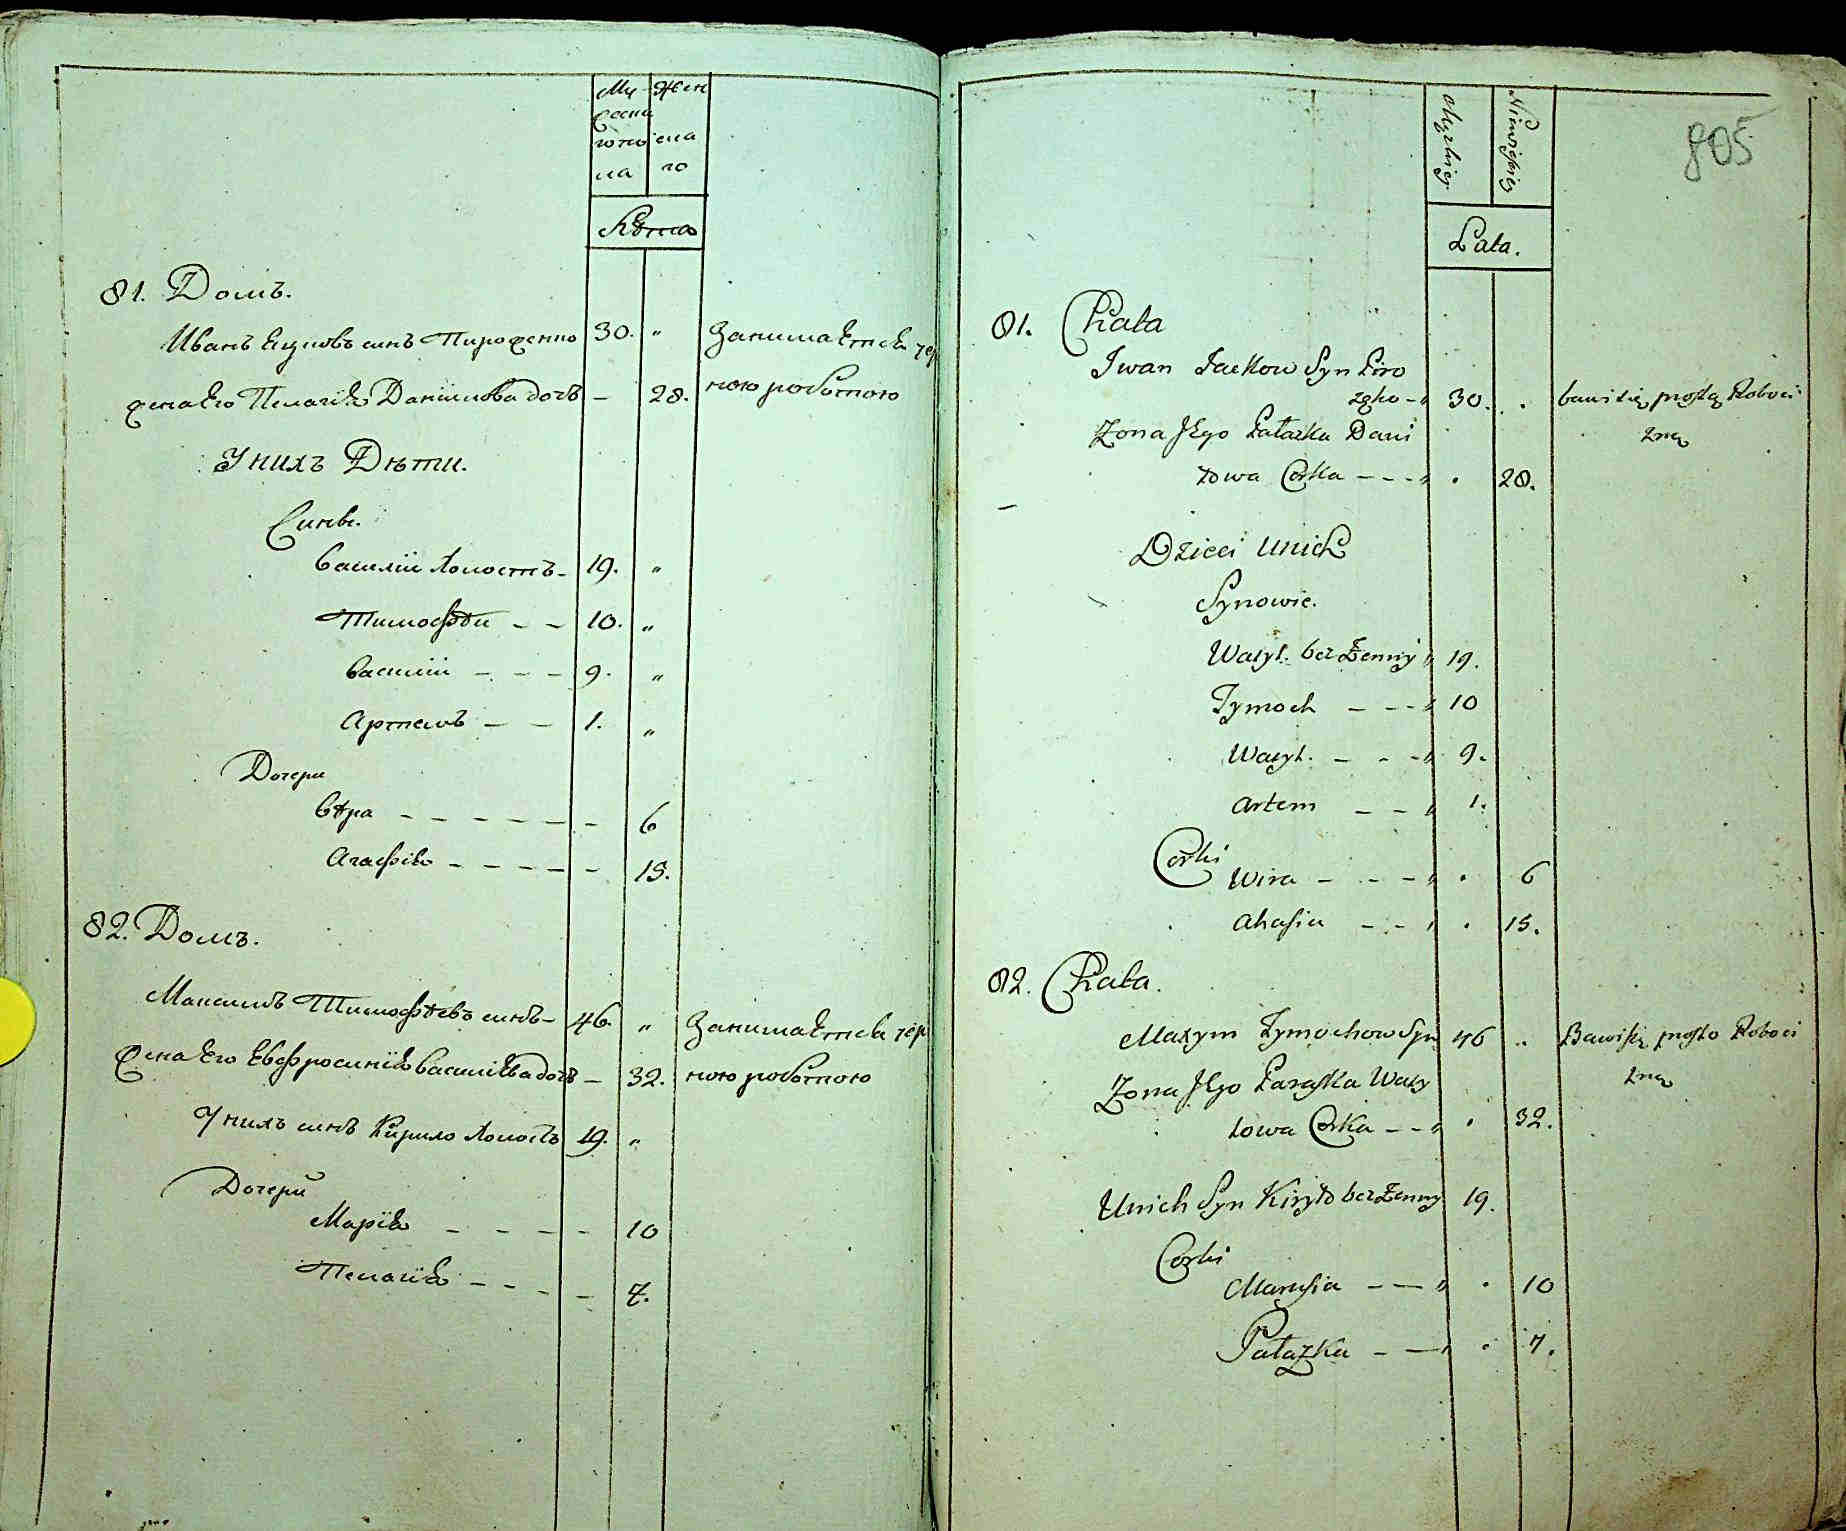 Му Жен
жеска
гопо ска
ла го
Лѣта
81. Домъ.
Иванъ Яцковъ синъ Пироженко 30. „ Занимается чер
жена Его Пелагія Даніилова дочъ – 28. ною роботою
У нихъ Дѣти.
Сини.
Василій Холостъ – 19. „
Тимофѣй – – 10. „
Василій – – – 9. „
Артемъ – – 1. „
Дочери
Вѣра – – – – – – – 6
Агафія – – – – – – 15.
82. Домъ.
Максимъ Тимофѣевъ синъ – 46. „ Занимается чер
Жена Его Евфросинія Василіева дочъ – 32. ною роботою
У нихъ синъ Кирило Холостъ 19. „
Дочери
Марія – – – – – 10
Пелагія – – – – – 7.
805
Męzkiey Niewieściey
Lata.
81. Chata
Iwan Jackow Syn Piro
zęko – „ 30. . bawi się prostą Roboci
Zona Jego Pałazka Dani zną
łowa Corka – – – „ . 28.
Dzieci Unich
Synowie.
Wasyl. bez Zenny „ 19.
Tymoch – – – „ 10
Wasyl. – – – „ 9.
Artem – – „ 1.
Corki
Wira – – – – „ . 6
Ahafia – – – „ . 15.
82. Chata.
Maxym Tymochow Syn 46 „ Bawi się prosto Roboci
Zona Jego Paraska Wasy zną
lowa Corka – – „ . 32.
Unich Syn Kiryło bez Zenny 19.
Corki
Marusia – – „ . 10
Pałazka – – „ . 7.